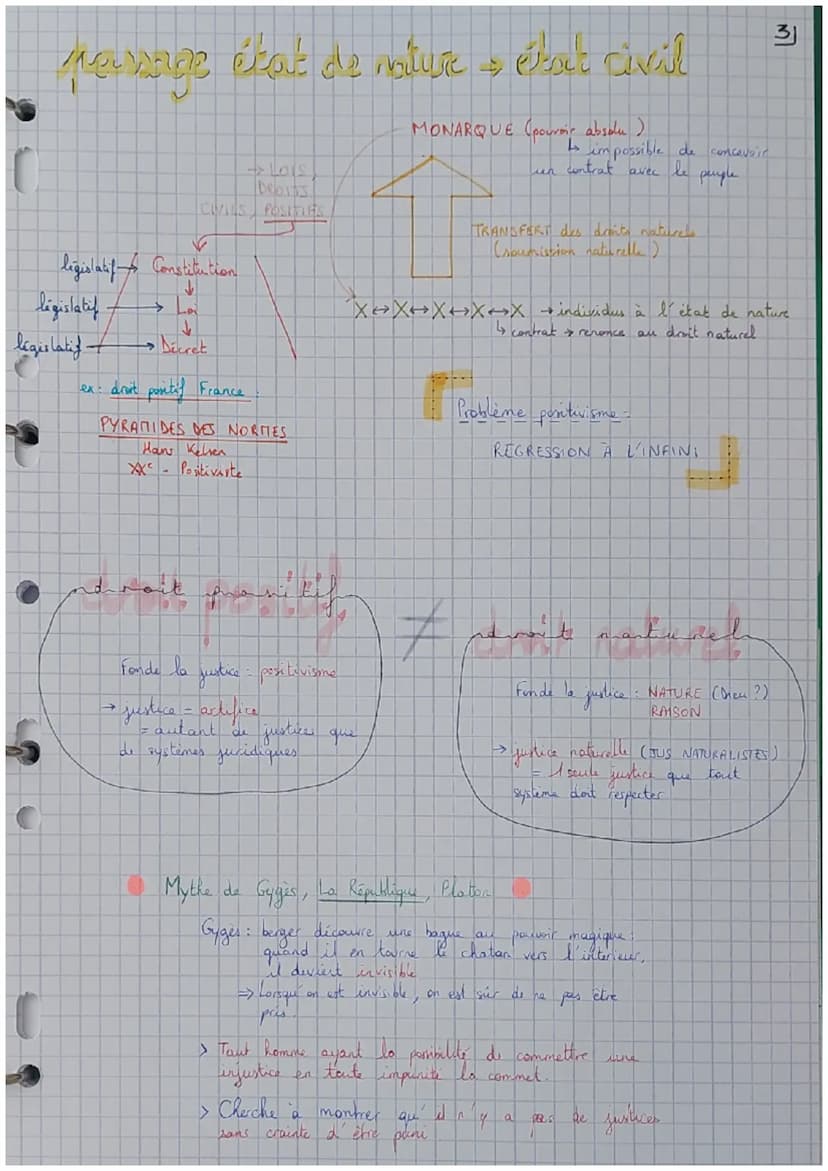 3)
passage état de nature → état civil
MONARQUE (pouvoir absolu)
↳ impossible de concevoir
un contrat avec le peuple
→ LOIS,
DROITS
CIVILS, POSITIFS
TRANSFERT des droits naturels
(soumission naturelle)
législatif → Constitution
législatif → Loi
législatif → Décret
X ↔ X ↔ X ↔ X ↔ X → individus à l'état de nature
↳ contrat → renonce au droit naturel
ex: droit positif France :
PYRAMIDES DES NORMES
Hans Kelsen
XXᵉ - Positiviste
Problème positivisme =
RÉGRESSION À L'INFINI
droit positif
≠
droit naturel
Fonde la justice = positivisme
→ justice = artifice
= autant de justice que
de systèmes juridiques
Fonde la justice : NATURE (Dieu ?)
RAISON
→ justice naturelle (JUS NATURALISTES)
= 1 seule justice que tout
système doit respecter
Mythe de Gygès, La République, Platon
Gygès : berger découvre une bague au pouvoir magique :
quand il en tourne le chaton vers l'intérieur,
il devient invisible
⇒ Lorsqu'on est invisible, on est sûr de ne pas être
pris.
> Tout homme ayant la possibilité de commettre une
injustice en toute impunité la commet.
> Cherche à montrer qu'il n'y a pas de justices
sans crainte d'être puni